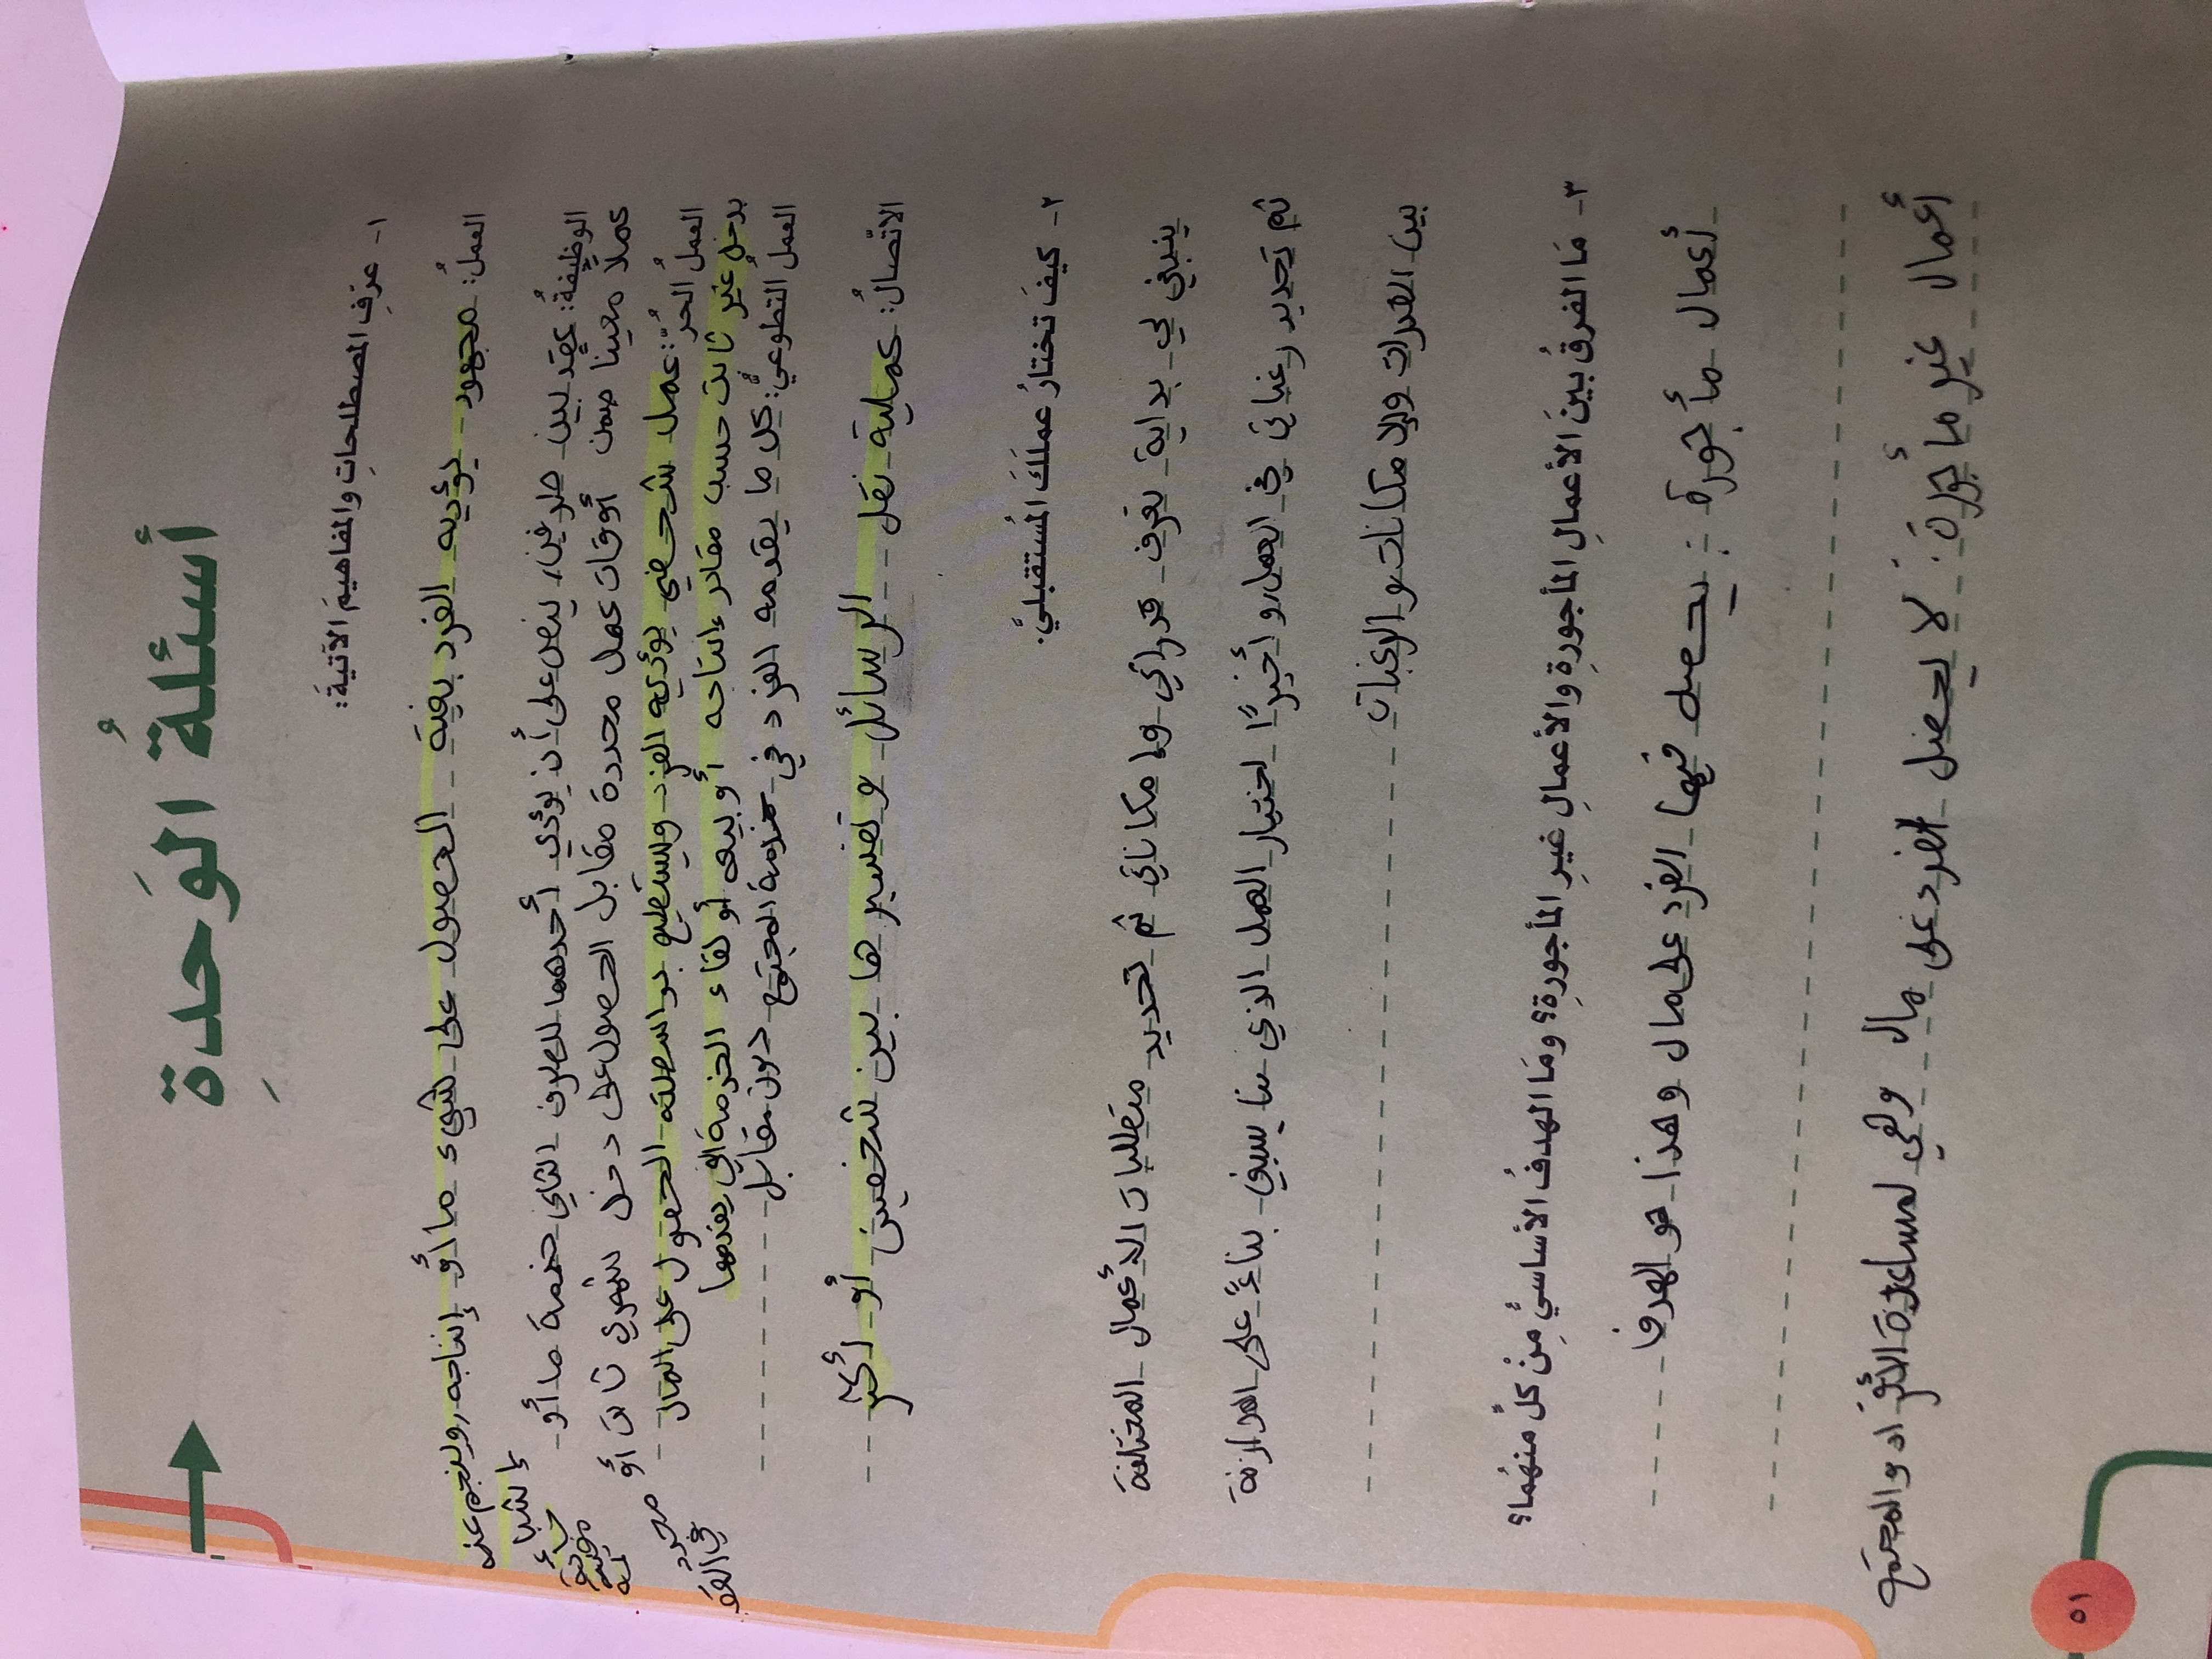 أسئلةُ الوَحدةِ
١- عرّفِ المصطلحاتِ والمفاهيمَ الآتيةَ:
العملُ: مجهود يؤديه الفرد بغية الحصول على شيء ما أو إنتاجه، وينجم عنه
إشباع
الوظيفةُ: عقد بين طرفين، ينص على أن يؤدي أحدهما للطرف الثاني خدمة ما أو
عملاً معينا ضمن أوقات عمل محددة مقابل الحصول على دخل شهري ثابت أو محدد
في العقد
العملُ الحُرُّ: عمل شخصي يؤديه الفرد ويستطيع بواسطته الحصول على المال
بدخل غير ثابت حسب مقادر إنتاجه أو بيعه أو لقاء الخدمة التي يقدمها
العملُ التطوعيُّ: كل ما يقدمه الفرد في خدمة المجتمع دون مقابل
الاتّصالُ: عملية نقل الرسائل وتفسيرها بين شخصين أو أكثر
٢- كيفَ تختارُ عملَكَ المُستقبليَّ.
ينبغي لي بداية تعرف قدراتي وإمكاناتي ثم تحديد متطلبات الأعمال المختلفة
ثم تحديد رغباتي في العمل وأخيرًا اختيار العمل الذي يناسبني بناءً على الموازنة
بين القدرات والإمكانات والرغبات
٣- مَا الفرقُ بينَ الأعمالِ المأجورةِ والأعمالِ غيرِ المأجورةِ؟ ومَا الهدفُ الأساسيُّ مِنْ كلٍّ منهُما؟
أعمال مأجورة: يحصل فيها الفرد على مال وهذا هو الهدف
أعمال غير مأجورة: لا يحصل الفرد على مال وهي لمساعدة الأفراد والمجتمع
٥١